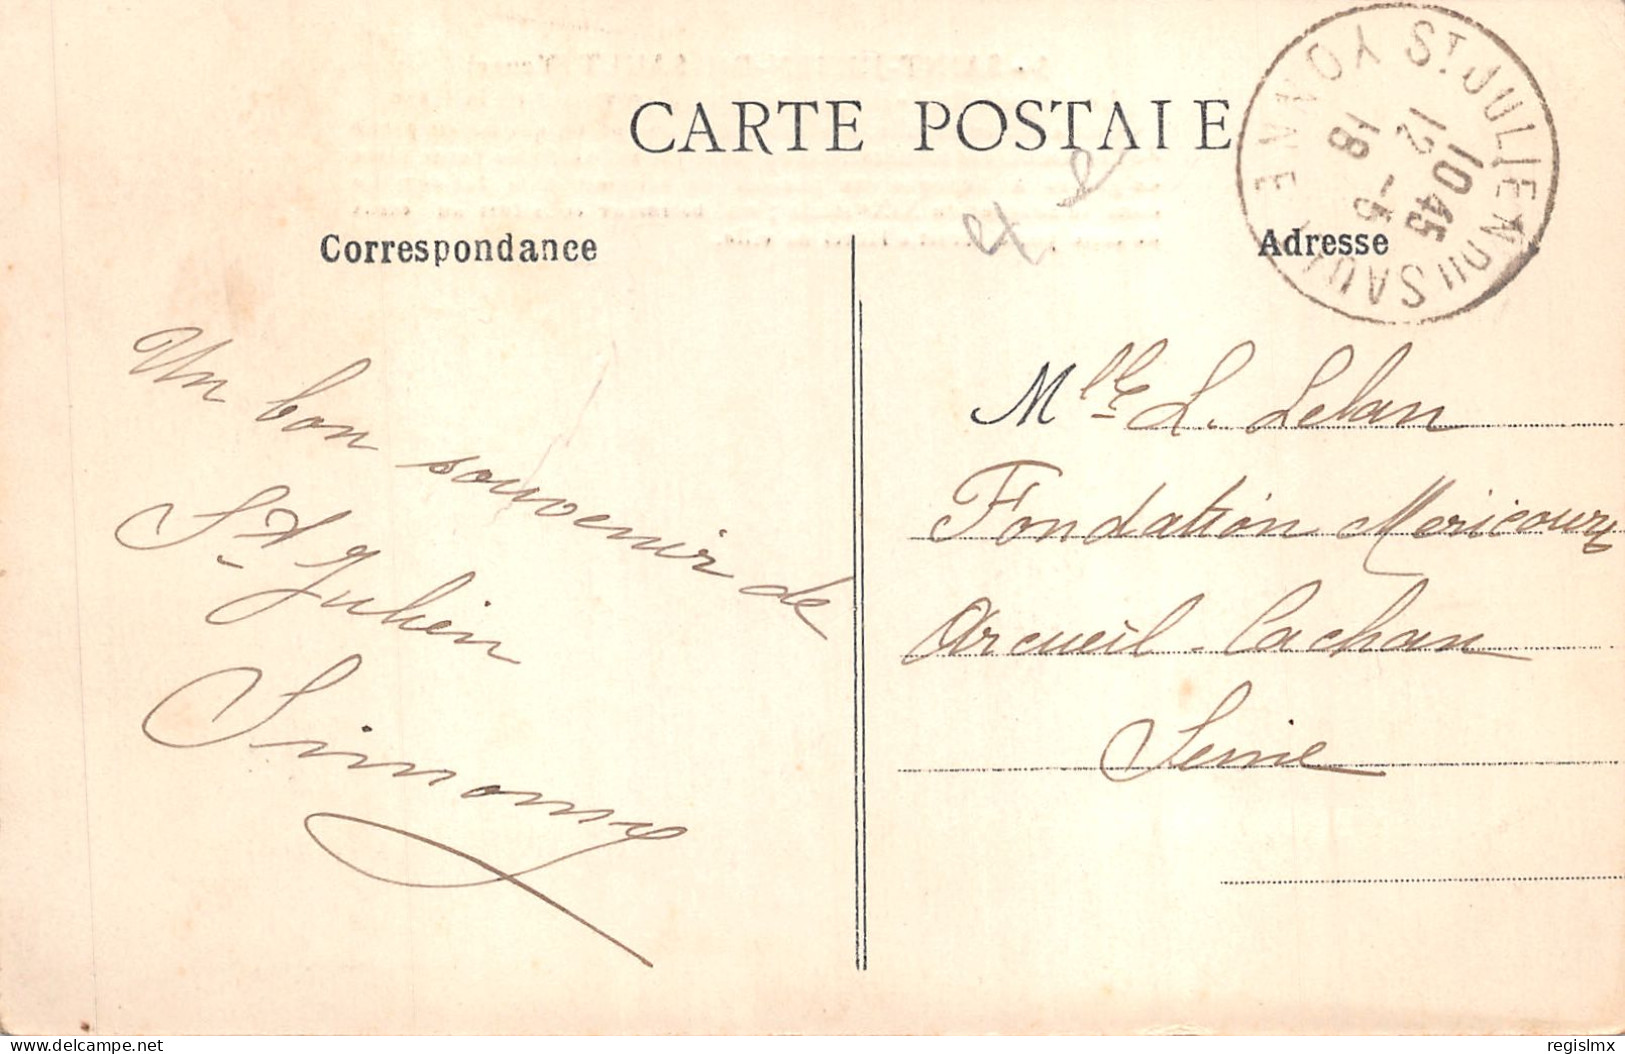 CARTE POSTALE
Correspondance
Adresse
ST JULIEN DU SAULT
YONNE
10 45
12 - 5
18
Un bon souvenir de
St Julien
Simone
Mlle L. Lelan
Fondation Mericourt
Arcueil-Cachan
Seine
delcampe.net
regislmx